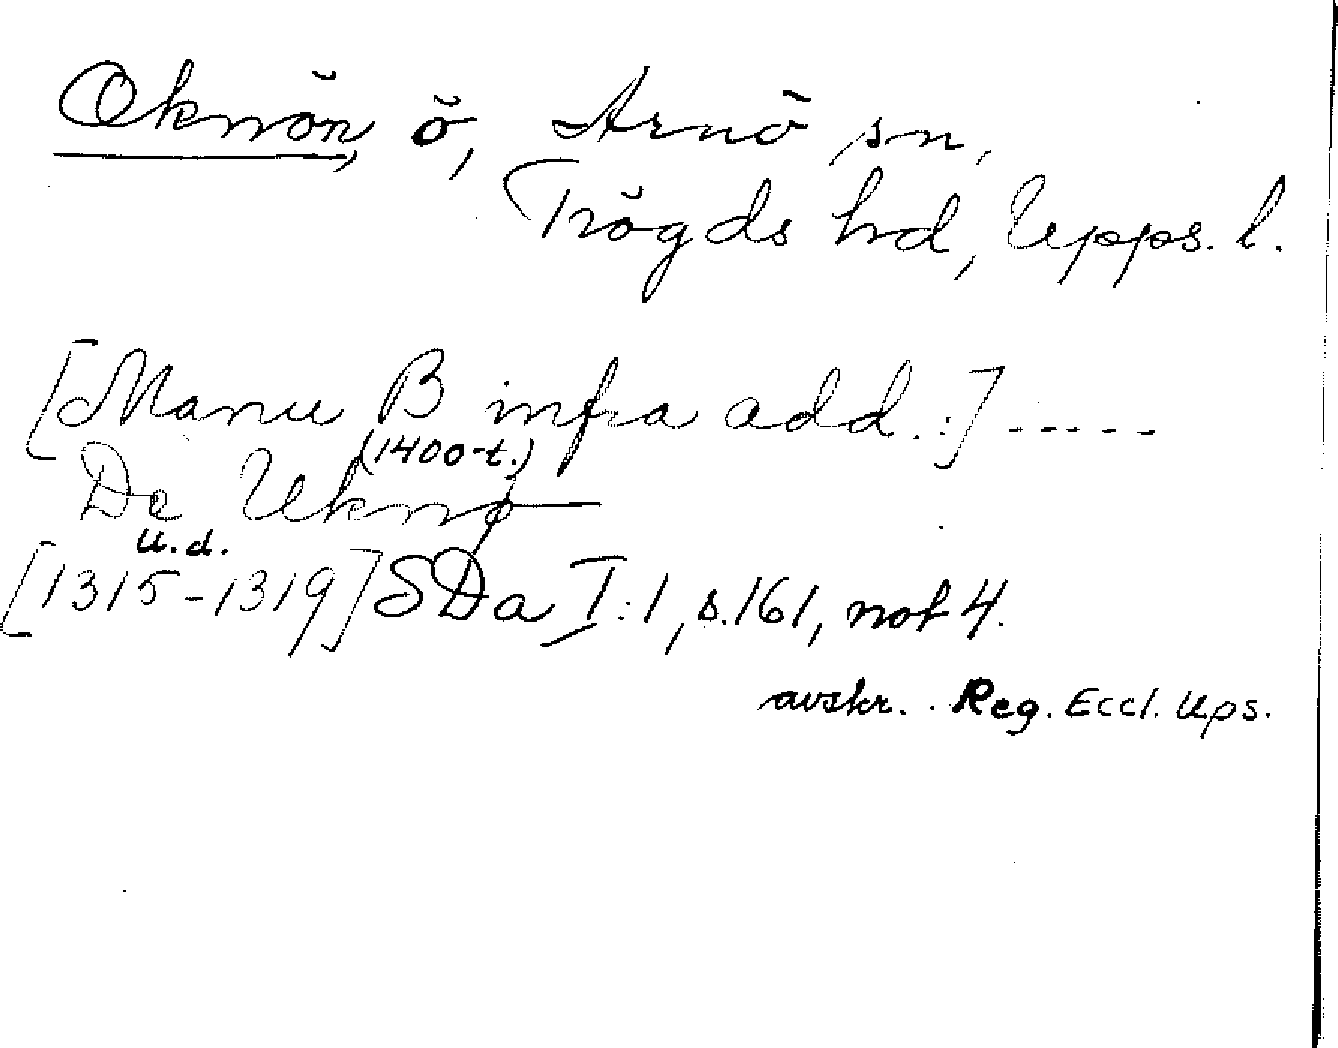 Oknön, ö, Arnö sn,
Trögds hd, Upps. l.
[Manu B infra add.:] -----
(1400-t.)
De Uknø
u.d.
[1315-1319] SDa I:1, s.161, not 4.
avskr. Reg. Eccl. Ups.